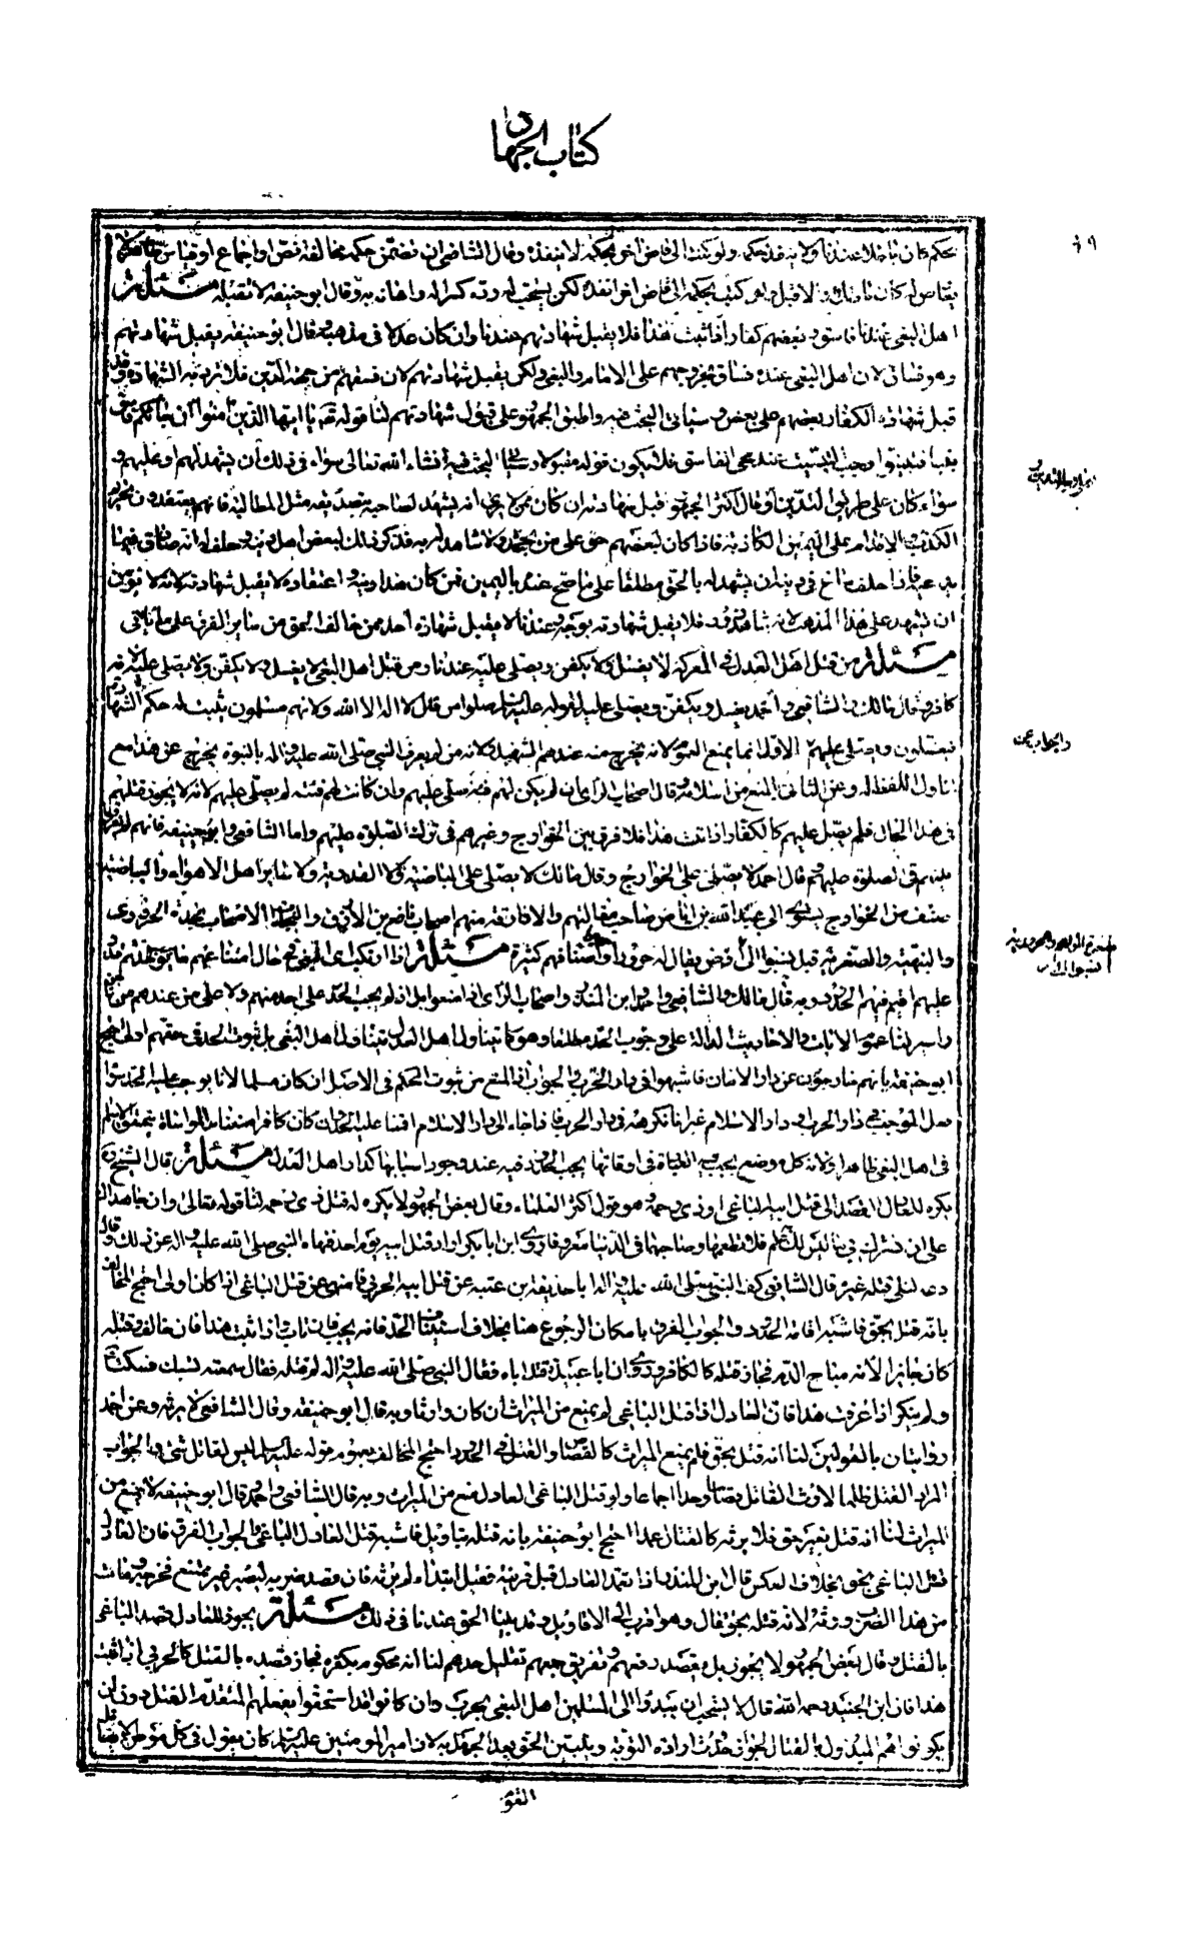 كتاب الجهاد
حكم كان باطلا عندنا ولانه قد حكم ولو كتب الى قاض اخر بحكمه لا ينفذه وقال الشافعى ان تضمن حكمه مخالفة نص او اجماع او قياس
قاض اخر انفذه لكن يستحب له رده كسرا له واهانة به وقال ابو حنيفة لا تقبله مسئلة
اهل البغى عندنا فاسق وبعضهم كفار اذا ثبت هذا فلا يقبل شهادتهم عندنا وان كان عدلا فى مذهبه وقال ابو حنيفة يقبل شهادتهم
وهو فساق لان اهل البغى عنده فساق بخروجهم على الامام والبغى ولكن يقبل شهادتهم لان فسقهم من جهة الدين فلا ترد به الشهادة وقد
قبل شهادة الكفار بعضهم على بعض وسياتى البحث فيه واطبق الجمهور على قبول شهادتهم لنا قوله تعالى يا ايها الذين امنوا ان جائكم فاسق
بنبأ فتبينوا وجب التثبت عند مجى الفاسق فلا يكون قوله مقبولا وسياتى البحث فيه انشاء الله تعالى سواء فى ذلك ان يشهد لهم او عليهم و
سواء كان على طريق التدين او وقال اكثر الجمهور قبل شهادته ان كان ممن لا يرى انه يشهد لصاحبه بتصديقه مثل الخطابية فانهم يعتقدون تحريم
الكذب والاقدام على اليمين الكاذبة فاذا كان لبعضهم حق على من يجحده ولا شاهد له به فذكر ذلك لبعض اهل دينه وحلف له انه صادق فيما
يدعيه فاذا حلف ساغ فى دينه ان يشهد له بالحق مطلقا على ما صح عنده باليمين فمن كان هذا دينه واعتقاده لا يقبل شهادته لانه لا يؤمن
ان يشهد على هذا المذهب لانه شاهد زور فلا يقبل شهادته بوجه وعندنا لا يقبل شهادة احد ممن خالف الحق من سائر الفرق على ما ياتى
مسئلة من قتل اهل العدل فى المعركة لا يغسل ولا يكفن ويصلى عليه عندنا ومن قتل اهل البغى لا يغسل ولا يكفن ولا يصلى عليه لانه
كافر وقال مالك والشافعى واحمد يغسل ويكفن ويصلى عليه لقوله عليه السلام صلوا من قال لا اله الا الله ولانهم مسلمون لم يثبت له حكم الشهادة
فيغسلون ويصلى عليهم الاول انما يمنع العموم لانه يخرج منه عندهم الشهيد ولانه من لم يعرف النبى صلى الله عليه واله بالنبوة يخرج عن هذا مع
تناول اللفظ له وعن الثانى بالمنع من اسلامه وقال اصحاب الراى ان لم يكن لهم فئة صلى عليهم وان كانت لهم فئة لم يصلى عليهم لانه لا يجوز قتلهم
فى هذا الحال فلم يصل عليهم كالكفار اذا ثبت هذا فلا فرق بين الخوارج وغيرهم فى ترك الصلوة عليهم واما الشافعى وابو حنيفة فانهم لم يفرقوا
بينهم فى الصلوة عليهم وقال احمد لا يصلى على الخوارج وقال مالك لا يصلى على الاباضية ولا القدرية ولا سائر اهل الاهواء والاباضية
صنف من الخوارج ينسبون الى عبد الله بن اباض صاحب مقالتهم والازارقة منهم اصحاب نافع بن الازرق والنجدات اصحاب نجدة الحرورى
والبيهسية والصفرية قيل ينسبوا الى ارض يقال له حرورا واصنافهم كثيرة مسئلة اذا ارتكب اهل البغى فى حال امتناعهم ما يوجب الحد ثم قدر
عليهم اقيم فيهم الحدود وبه قال مالك والشافعى واحمد وابن المنذر واصحاب الراى اذا امتنعوا بدار لم يجب الحد على احد منهم ولا على من عندهم من تاجر
واسير لنا عموم الايات والاحاديث الدالة على وجوب الحد مطلقا وهو كما يتناول اهل العدل يتناول اهل البغى بل ثبوت الحد فى حقهم اولى احتج
ابو حنيفة بانهم خارجون عن دار الامان فاشبهوا فى دار الحرب والجواب المنع من ثبوت الحكم فى الاصل ان كان مسلما لانا نوجب عليه الحد سواء
فعل الموجب فى دار الحرب او دار الاسلام غير انا نكرهه فى دار الحرب فاذا جاء الى دار الاسلام اقمنا عليه الحد وان كان كافرا منعنا المواساة لتحقق الاسلام
فى اهل البغى ظاهرا ولانه كل موضع يجب فيه العبادة فى اوقاتها يجب الحدود فيه عند وجود اسبابها كدار اهل العدل مسئلة قال الشيخ ره
يكره للعادل القصد الى قتل ابيه الباغى او ذى رحمه وهو قول اكثر العلماء وقال بعض الجمهور لا يكره له قتل ذى رحمه لنا قوله تعالى وان جاهداك
على ان تشرك بى ما ليس لك به علم فلا تطعهما وصاحبهما فى الدنيا معروفا وروى ان ابا بكر اراد قتل ابيه يوم احد فنهاه النبى صلى الله عليه واله عن ذلك وقال
دعه ليلى قتله غيرك وقال الشافعى كف النبى صلى الله عليه واله ابا حذيفة بن عتبة عن قتل ابيه الحربى فانهى عن قتل الباغى اذا كان اولى احتج المخالف
بانه قتل بحق فاشبه اقامة الحدود والجواب الفرق بامكان الرجوع هنا بخلاف استيفاء الحد فانه يجب وان تاب واذا ثبت هذا فان خالف وقتله
كان جائزا لانه مباح الدم فجاز قتله كالكافر وروى ان ابا عبيدة قتل اباه فقال النبى صلى الله عليه واله لم قتلته فقال سمعته يسبك فسكت
ولم ينكر اذا عرفت هذا فان العادل اذا قتل الباغى لم يمنع من الميراث ان كان وارثا وبه قال ابو حنيفة وقال الشافعى لا يرثه وعن احمد
روايتان بالقولين لنا انه قتل بحق فلم يمنع الميراث كالقصاص والقتل فى الحدود احتج المخالف بعموم قوله عليه السلام ليس لقاتل شئ والجواب
المراد القتل ظلما لانا نورث القاتل قصاصا وحدا اجماعا ولو قتل الباغى العادل منع من الميراث وبه قال الشافعى واحمد وقال ابو حنيفة لا يمنع من
الميراث لنا انه قتل بغير حق فلا يرثه كالقتل عمدا احتج ابو حنيفة بانه قتله بتاويل فاشبه قتل العادل الباغى والجواب الفرق فان العادل
قتل الباغى بحق بخلاف العكس قال ابن المنذر اذا تعمد العادل قتل قريبه فقتل ابتداء لم يرثه فان قصد ضربه ليصير غير ممتنع فجرحه ومات
من هذا الضرب ورثه لانه قتله بحق قال وهو اقرب الى الاقاويل وقد بينا الحق عندنا فى ذلك مسئلة يجوز للعادل قصد الباغى
بالقتل وقال بعض الجمهور لا يجوز بل يقصد دفعهم وتفريق جمعهم لنا انه محكوم بكفره فجاز قصده بالقتل كالحربى اذا ثبت
هذا فان ابن الجنيد رحمه الله قال لا يستحب ان يبدؤا الى المسلمين اهل البغى بحرب وان كانوا قد استحقوا بفعلهم المتقدم القتل دون ان
يكونوا هم المبتدؤن بالقتال لجواز حدوث ارادة التوبة ويتبين الحق بعد الجهل به لان امير المؤمنين عليه السلام كان يقول فى كل موطن لا تقاتلوا
القوم